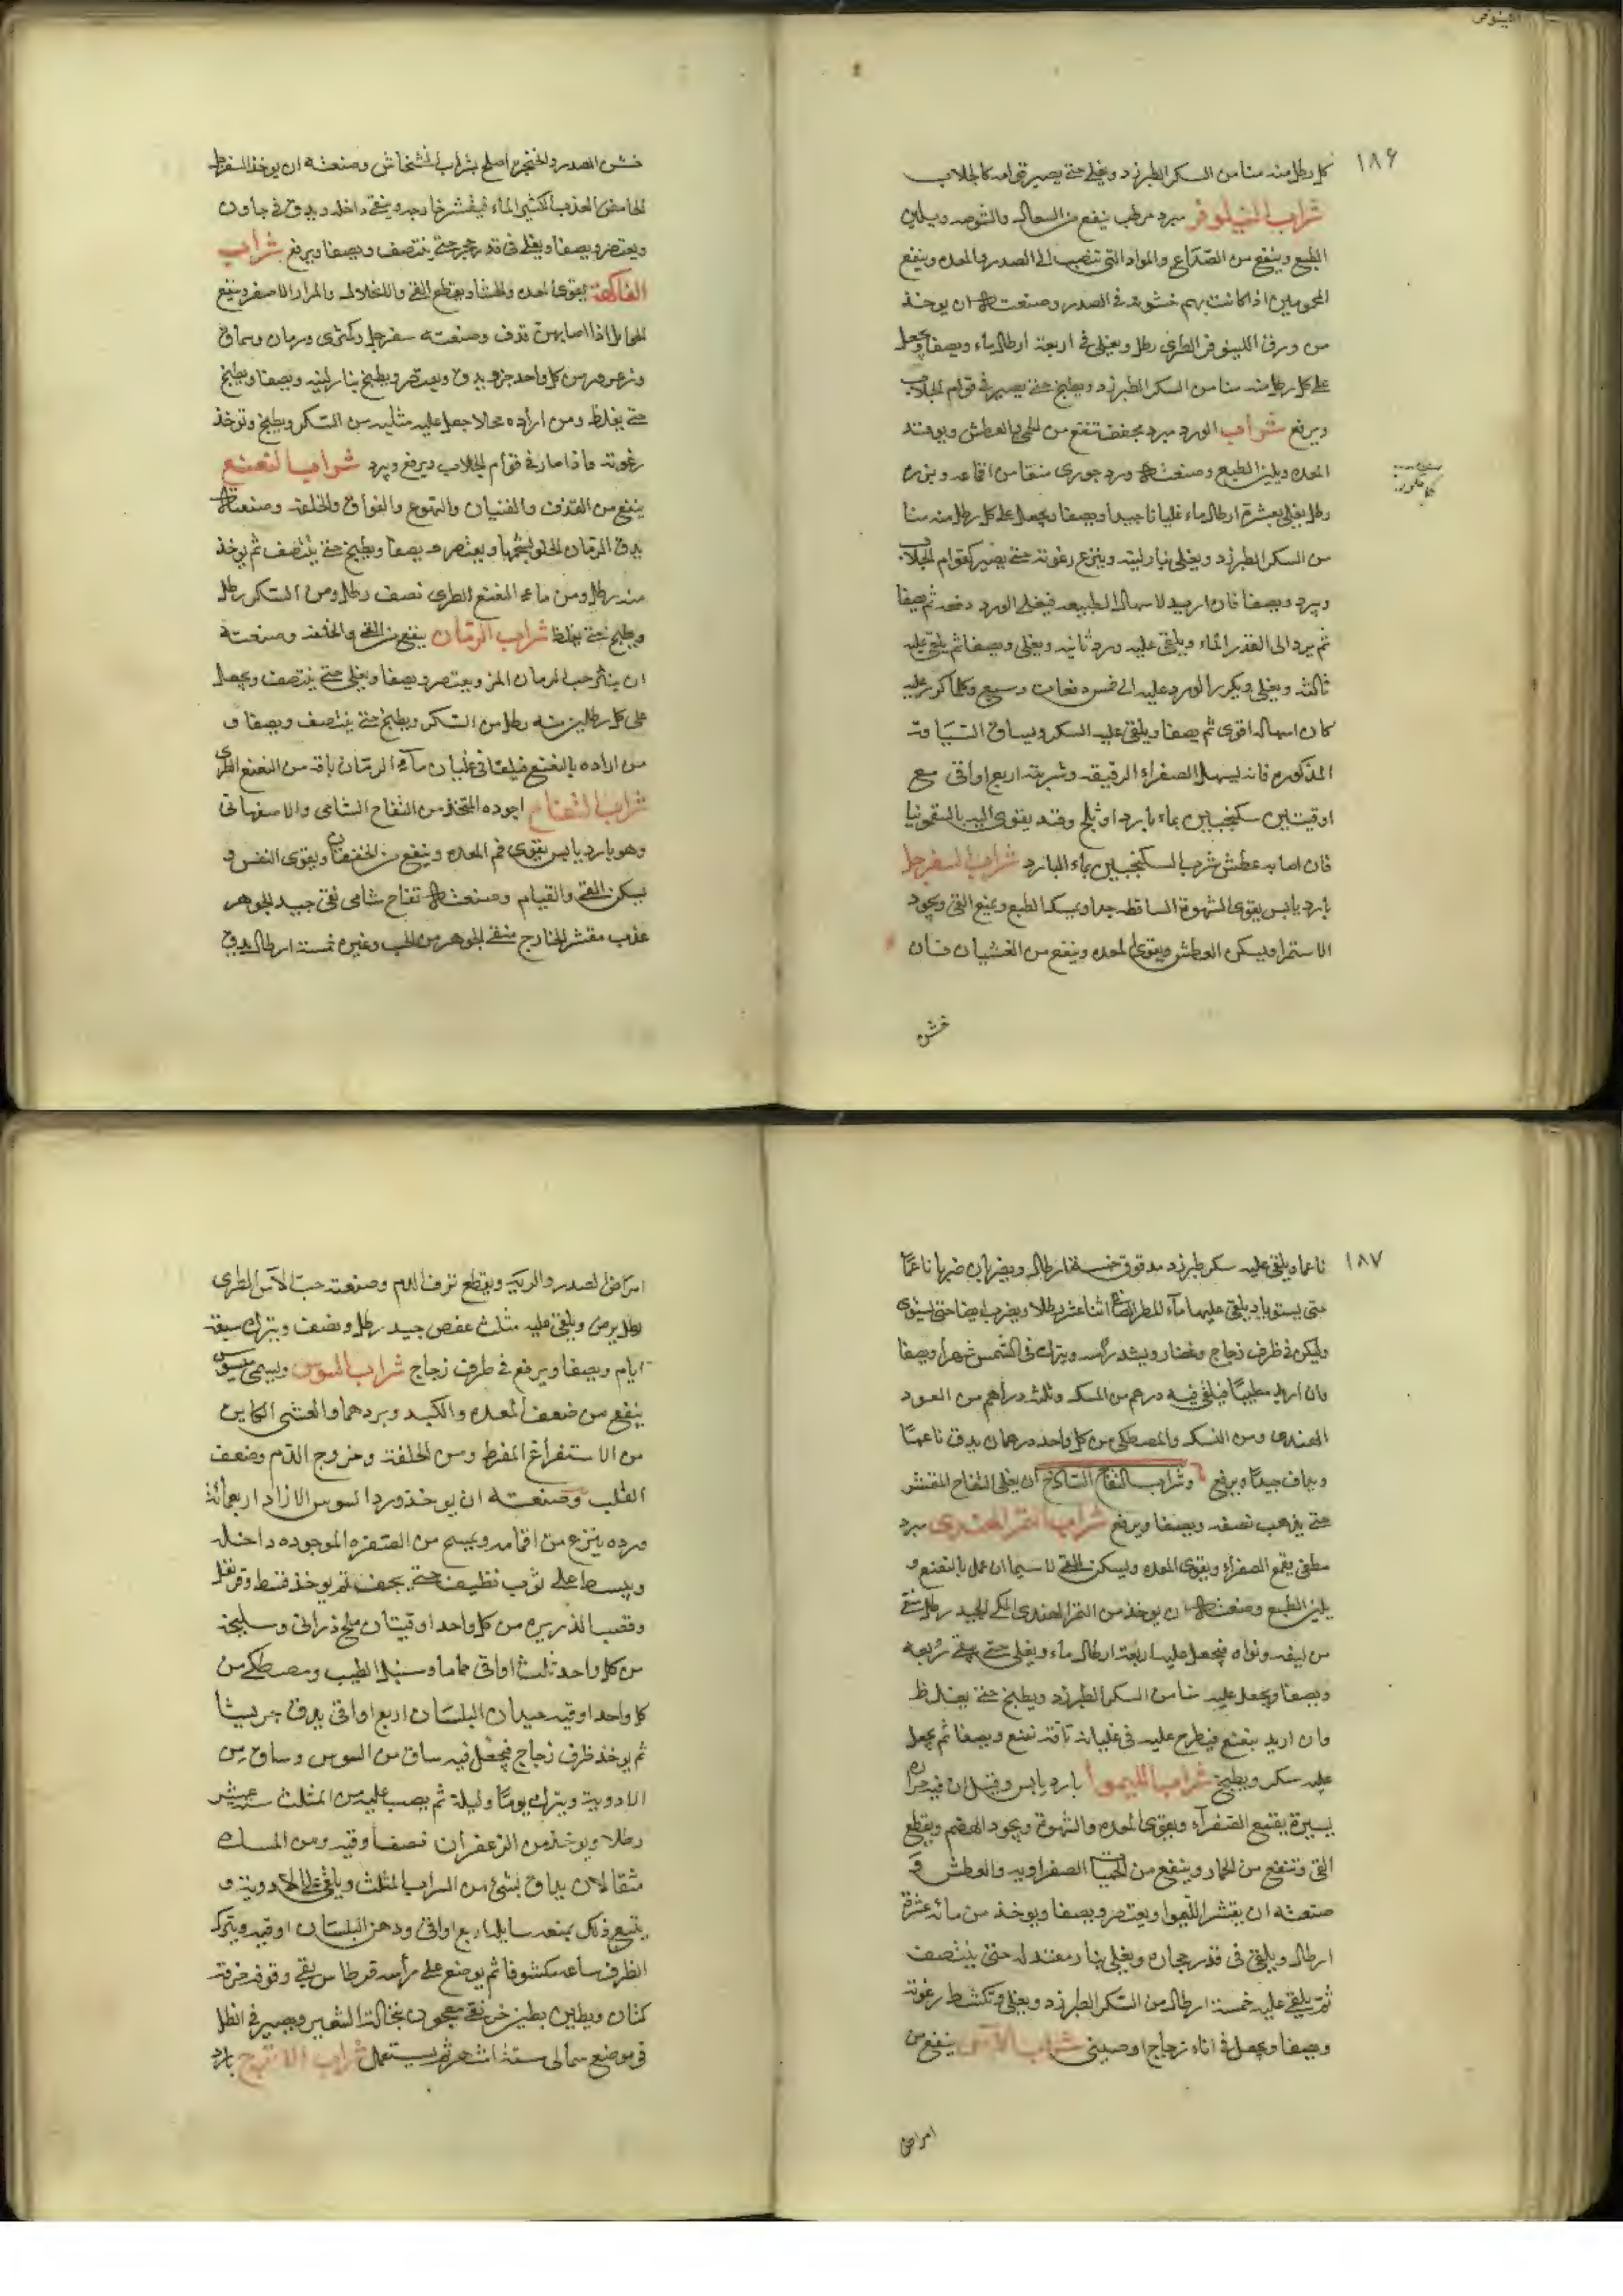 النيلوفر
١٨٦
كل رطل منه منا من السكر الطبرزد ويغلى حتى يصير قوامه كالجلاب
شراب النيلوفر مبرد مرطب ينفع من السعال والشوصه ويلين
الطبع وينفع من الصداع والمواد التى تنصب الى الصدر والمعده وينفع
المحمومين اذا كانت بهم خشونة فى الصدر وصنعته ان يوخذ
من ورق اللينوفر الطرى رطل ويغلى فى اربعة ارطال ماء ويصفا ويجعل
على كل رطل منه منا من السكر الطبرزد ويطبخ حتى يصير فى قوام الجلاب
ويرفع شراب الورد مبرد مجفف تنفع من الحمى والعطش ويوفد
المعده ويلين الطبع وصنعته ورد جورى منقا من اقماعه وبزره
رطل يغلى بعشرة ارطال ماء غليانا جيدا ويصفا ويجعل على كل رطل منه منا
من السكر الطبرزد ويغلى بنار لينه وينزع رغوته حتى يصير كقوام الجلاب
ويرد ويصفا فان اريد لاسهال الطبيعه فيغلى الورد دفعه ثم يصفا
ثم يرد الى القدر الماء ويلقى عليه ورد ثانيه ويغلى ويصفا ثم يلقى عليه
ثالثه ويغلى ويكرر الورد عليه الى خمس دفعات وسبع وكلما كرر عليه
كان اسهاله اقوى ثم يصفا ويلقى عليه السكر ويساق السياقة
المذكوره فانه يسهل الصفراء الرقيقه وشربته اربع اواقى مع
اوقيتين سكنجبين بماء بارد او ثلج وقد يقوى اليد بالسقمونيا
فان اصابه عطش شرب السكنجبين بماء البارد شراب السفرجل
بارد يابس يقوى الشهوة الساقطه جدا ويمسك الطبع ويمنع القى ويجود
الاستمرا ويسكن العطش ويقوى المعده وينفع من الغشيان فان
خشن
خشن الصدر والحنجره اصلح بشراب الخشخاش وصنعته ان يوخذ السفرجل
الحامض العذب الكثير الماء فيقشر خارجه وينقى داخله ويدق فى جاون
ويعتصر ويصفا ويغلى فى قدر حجر حتى ينتصف ويصفا ويرفع شراب
الفاكهة يقوى المعده والحشا ويقطع القى والانحلال والمرار الاصفر وينفع
الحوامل اذا اصابهن قذف وصنعته سفرجل وكمثرى ورمان وسماق
وزعرور من كل واحد جزو يدق ويعتصر ويطبخ بنار لينه ويصفا ويطبخ
حتى يغلظ ومن اراده محلا جعل عليه مثليه من السكر ويطبخ وتوخذ
رغوته فاذا صار فى قوام الجلاب ويرفع ويرد شراب النعنع
ينفع من القذف والغثيان والتهوع والفواق والخلفه وصنعته
يدق الرمان الحلو بشحمها ويعتصر ويصفا ويطبخ حتى ينتصف ثم يوخذ
منه رطل ومن ماء النعنع الطرى نصف رطل ومن السكر رطل
ويطبخ حتى يغلظ شراب الرمان ينفع من القى والخلفه وصنعته
ان ينثر حب الرمان المز ويعتصر ويصفا ويغلى حتى ينتصف ويجعل
على كل رطلين منه رطل من السكر ويطبخ حتى ينتصف ويصفا و
من اراده بالنعنع فيلقا فى غليان ماء الرمان باقه من النعنع الطرى
شراب التفاح اجوده المتخذ من التفاح الشامى والاصفهانى
وهو بارد يابس يقوى فم المعده وينفع من الخفقان ويقوى النفس و
يسكن القى والقيام وصنعته تفاح شامى نقى جيد الجوهر
عذب مقشر الخارج منقى الجوهر من الحب وغيره خمسة ارطال يدق
١٨٧
ناعما ويلقى عليه سكر طبرزد مدقوق خمسة ارطال ويضربان ضربا ناعما
حتى يستويا ويلقى عليهما ماء المطر الصافى اثنا عشر رطلا ويضرب ايضا حتى يستوى
وليكن فى ظرف زجاج وغضار ويشد راسه ويترك فى الشمس شهرا ويصفا
وان اريد مطيبا فيلقى فيه درهم من المسك وثلثه دراهم من العود
الهندى ومن السك والمصطكى من كل واحد درهمان يدق ناعما
ويداف جيدا ويرفع وشراب التفاح الساذج ان يغلى التفاح المقشر
حتى يذهب نصفه ويصفا ويرفع شراب التمر الهندى مبرد
مطفى يقمع الصفراء ويقوى المعده ويسكن القى لا سيما ان عمل بالنعنع و
يلين الطبع وصنعته ان يوخذ من التمر الهندى المكى الجيد رطل منقى
من ليفه ونواه فيجعل عليه اربعة ارطال ماء ويغلى حتى يبقى ربعه
ويصفا ويجعل عليه منا من السكر الطبرزد ويطبخ حتى يغلظ
وان اريد بنعنع فيطرح عليه فى غليانه باقة نعنع ويصفا ثم يجعل
عليه سكر ويطبخ شراب الليموا بارد يابس وقيل ان فيه حراره
يسيرة يقمع الصفراء ويقوى المعده والشهوة ويجود الهضم ويقطع
القى وتنفع من الخمار وينفع من الحميات الصفراويه والعطش و
صنعته ان يقشر الليموا ويعتصر ويصفا ويوخذ من مائه عشرة
ارطال ويلقى فى قدر حجاره ويغلى بنار معتدله حتى ينتصف
ثم يلقى عليه خمسة ارطال من السكر الطبرزد ويغلى وتكشط رغوته
ويصفا ويجعل فى اناء زجاج او صينى شراب الآس ينفع من
امراض
امراض الصدر والريه ويقطع نزف الدم وصنعته حب الآس الطرى
رطل يرض ويلقى عليه مثلث عفص جيد رطل ونصف ويترك سبعة
ايام ويصفا ويرفع فى ظرف زجاج شراب السوس ويسمى ميسوس
ينفع من ضعف المعده والكبد وبردهما والغشى الكاين
من الاستفراغ المفرط ومن الخلفة وخروج الدم وضعف
القلب وصنعته ان يوخذ ورد السوس الازاد اربعمائة
ورده ينزع من اقماعه ويمسح من الصفره الموجوده داخله
ويبسط على ثوب نظيف حتى يجف ثم يوخذ قسط وقرنفل
وقصب الذريره من كل واحد اوقيتان ملح ذرانى وسليخة
من كل واحد ثلث اواقى حماما وسنبل الطيب ومصطكى من
كل واحد اوقيه عيدان البلسان اربع اواقى يدق جريشا
ثم يوخذ ظرف زجاج فيجعل فيه ساق من السوس وساق من
الادوية ويترك يوما وليلة ثم يصب عليه من المثلث ستة عشر
رطلا ويوخذ من الزعفران نصف اوقيه ومن المسك
مثقالان يداق بشئ من الشراب المثلث ويلقى على الادوية و
يتبع ذلك بميعه سايله اربع اواقى ودهن البلسان اوقيه ويترك
الظرف ساعه مكشوفا ثم يوضع على راسه قرطاس نقى وفوقه خرقة
كتان ويطين بطين خر نقى معجون بنخالة الشعير ويصير فى الظل
فى موضع شمالى ستة اشهر ثم يستعمل شراب الاترج بارد